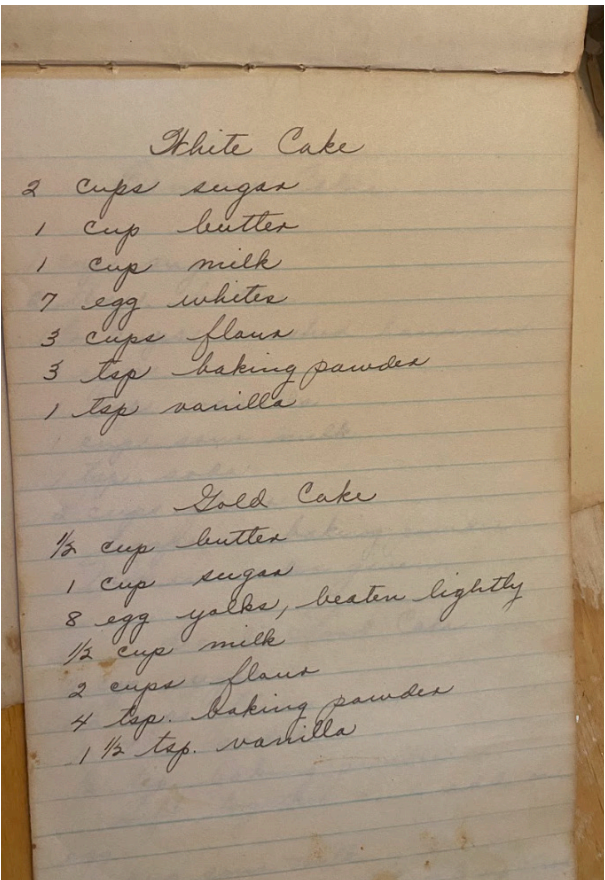 White Cake
2 cups sugar
1 cup butter
1 cup milk
7 egg whites
3 cups flour
3 tsp baking powder
1 tsp vanilla
Gold Cake
½ cup butter
1 cup sugar
8 egg yolks, beaten lightly
½ cup milk
2 cups flour
4 tsp. baking powder
1 ½ tsp. vanilla